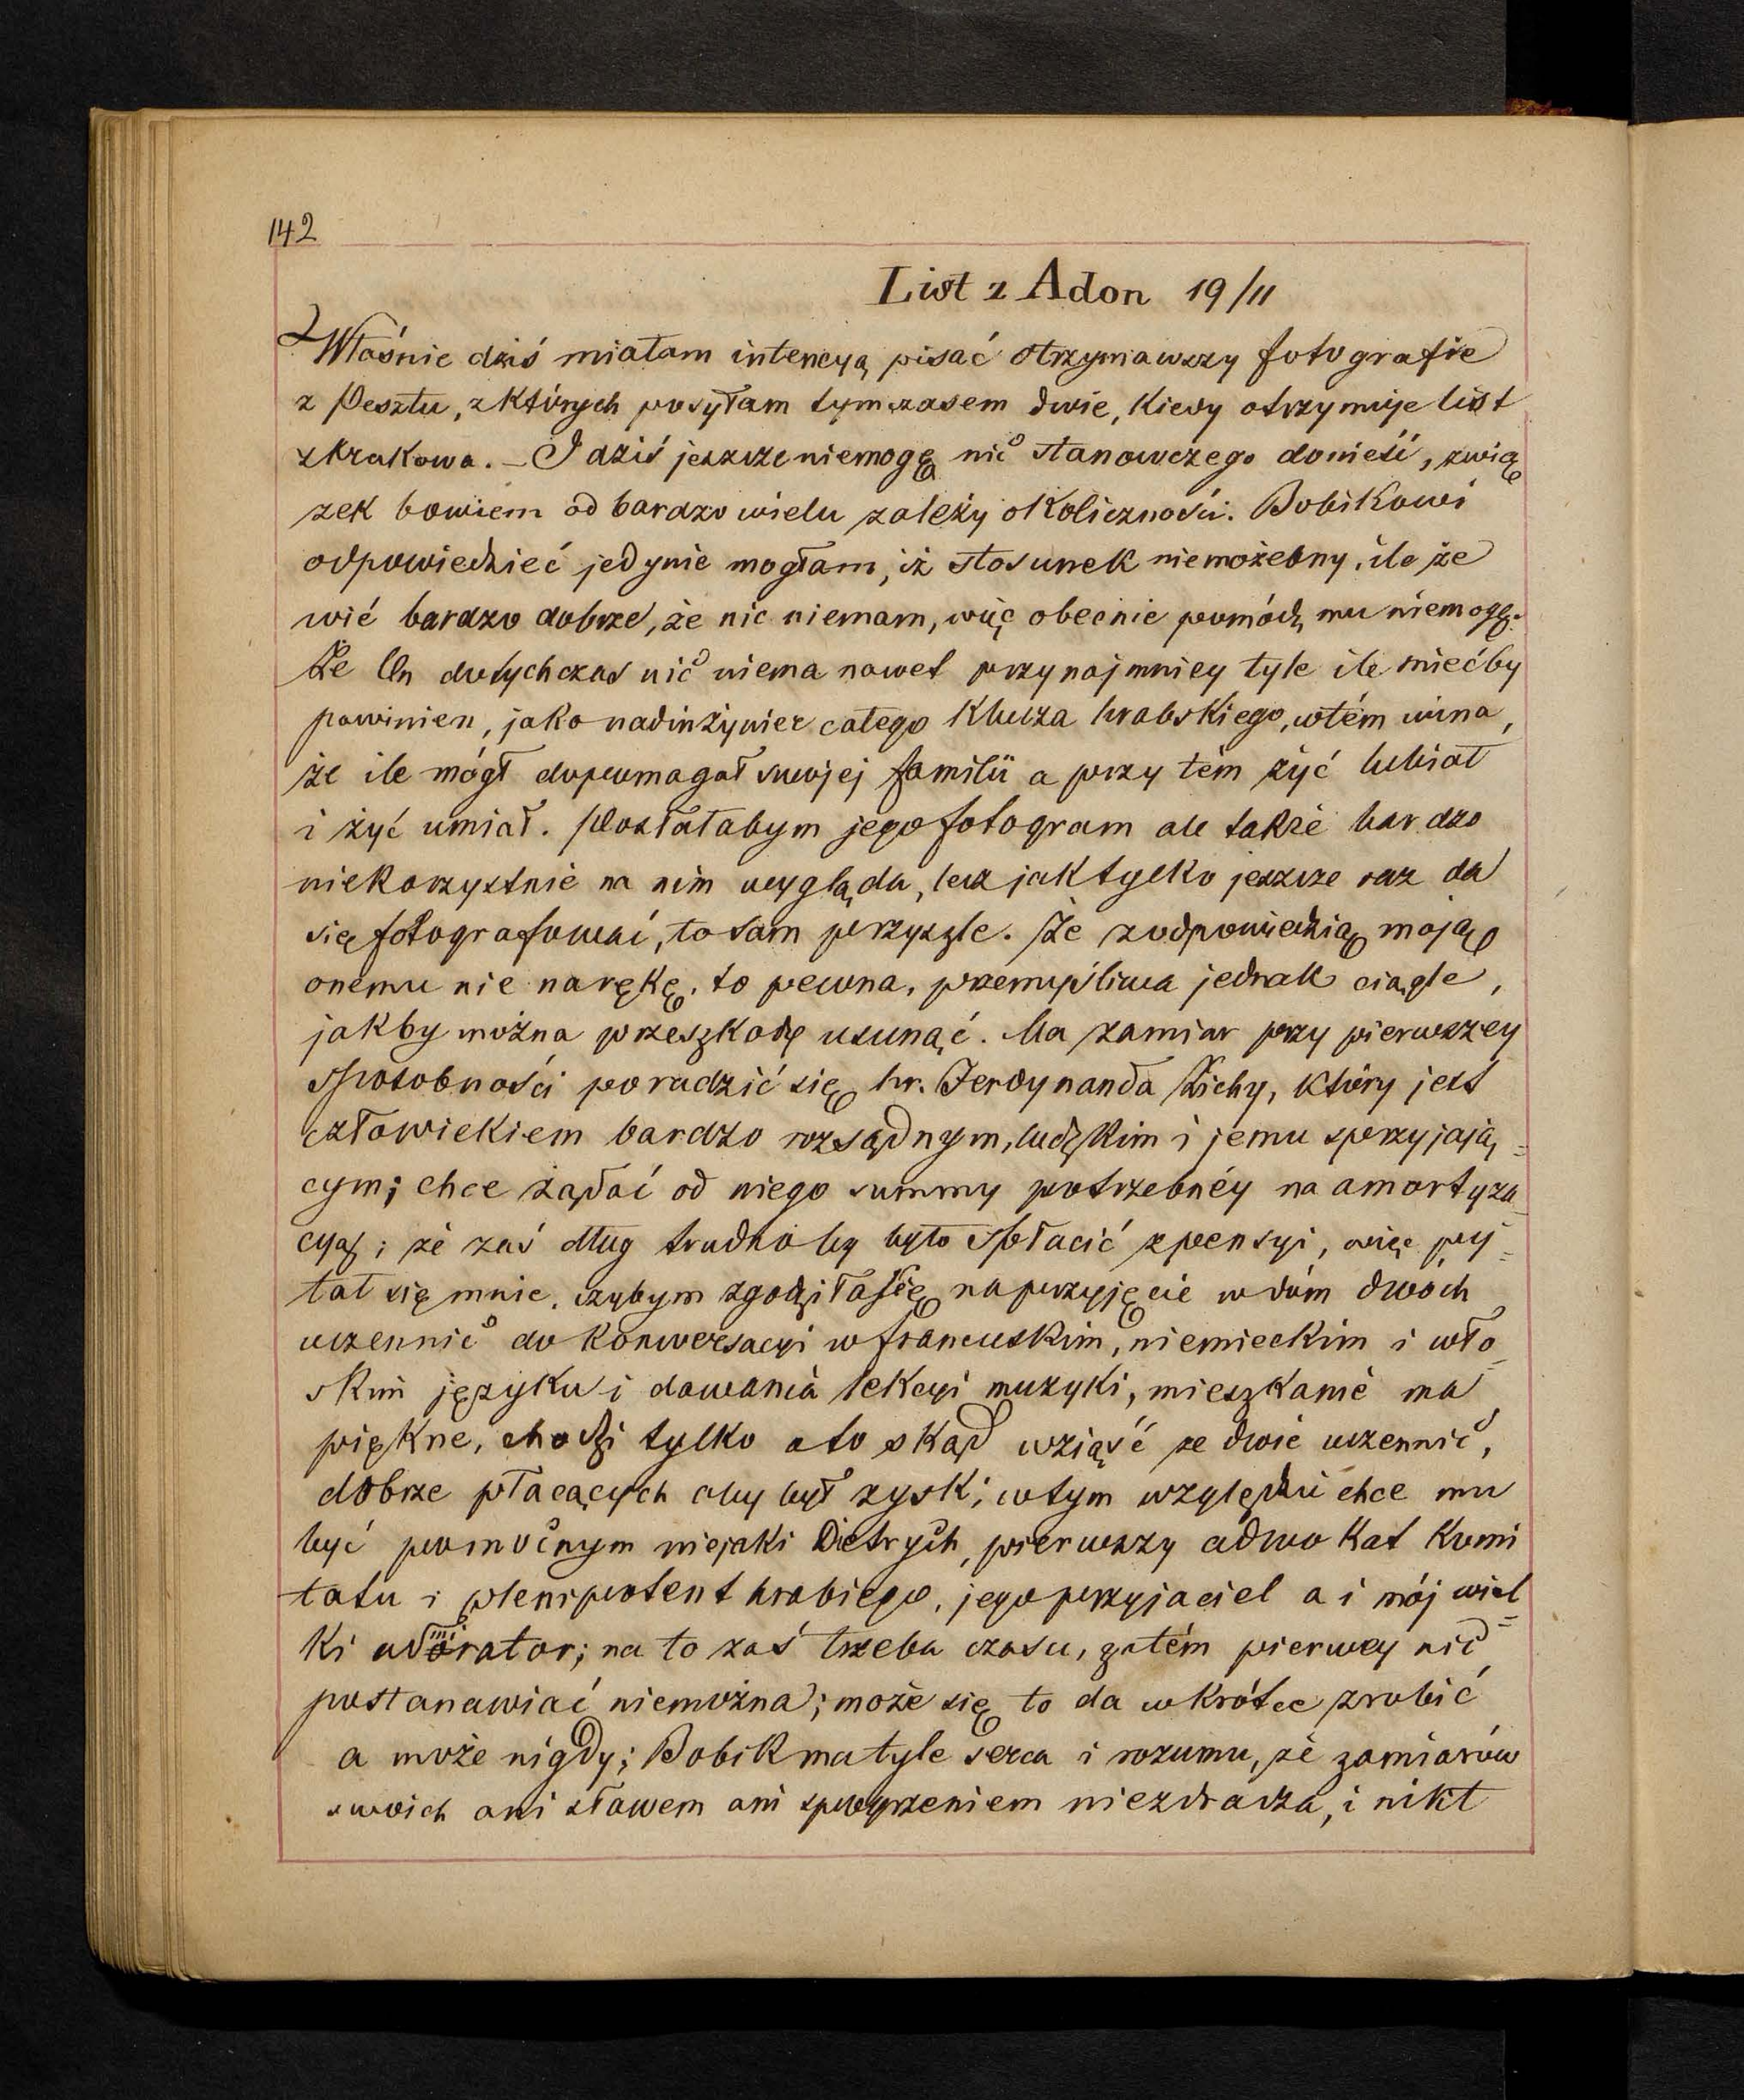 142
List z Adon 19/11
Właśnie dziś miałam intencyą pisać otrzymawszy fotografie
z Pesztu, z których posyłam tymczasem dwie, kiedy otrzymuje list
z Krakowa. – I dziś jeszcze niemogę nic stanowczego donieść, zwią
zek bowiem od bardzo wielu zależy okoliczności. Bobikowi
odpowiedzieć jedynie mogłam, iż stosunek niemożebny, ile że
wié bardzo dobrze, że nic niemam, więc obecnie pomódz mu niemogę.
Że On dotychczas nic niema nawet przynajmniey tyle ile miećby
powinien, jako nadinżynier całego Klucza hrabskiego, w tém wina,
że ile mógł dopomagał swojej familii a przy tém żyć lubiał
i żyć umiał. Posłałabym jego fotogram ale także bardzo
niekorzystnie na nim wygląda, lecz jak tylko jeszcze raz da
się fotografować, to sam przyszle. Że z odpowiedzią moją
onemu nie na rękę, to pewna, przemyśliwa jednak ciągle,
jakby można przeszkodę usunąć. Ma zamiar przy pierwszey
sposobności poradzić się hr. Ferdynanda Zichy, który jest
człowiekiem bardzo rozsądnym, ludzkim i jemu sprzyjają=
cym; chce żądać od niego summy potrzebnéy na amortyza
cyą; że zaś dług trudno by było spłacić z pensyi, więc py=
tał się mnie, czybym zgodziła się na przyjęcie w dóm dwoch
uczennic do konwersacyi w francuskim, niemieckim i wło
skim języku i dawania lekcyi muzyki, mieszkanie ma
piękne, chodzi tylko o to skąd wziąść ze dwie uczennic,
dobrze płacących aby był zysk; w tym względzie chce mu
być pomocnym niejaki Dietrych, pierwszy adwokat Komi
tatu i plenipotent hrabiego, jego przyjaciel a i mój wiel=
ki admirator; na to zaś trzeba czasu, zatém pierwey nic
postanawiać niemożna; może się to da wkrótce zrobić
a może nigdy; Bobik ma tyle serca i rozumu, że zamiarów
swoich ani słowem ani spoyrzeniem niezdradza, i nikt